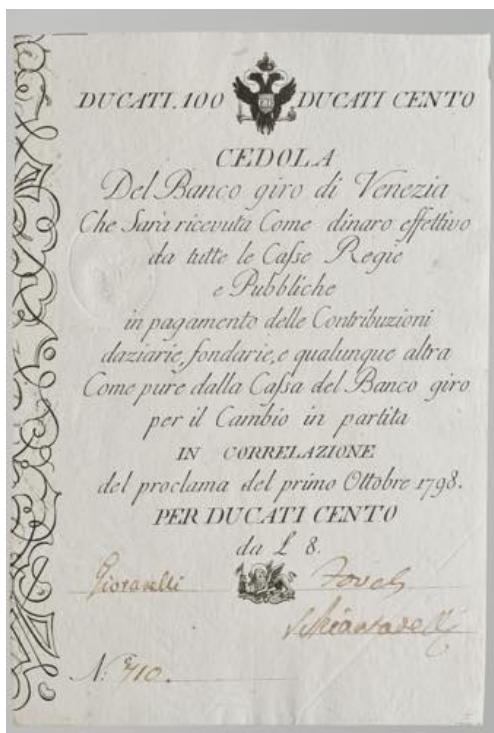 DUCATI.100 DUCATI CENTO
CEDOLA
Del Banco giro di Venezia
Che Sarà ricevuta Come dinaro effettivo
da tutte le Caſse Regie
e Pubbliche
in pagamento delle Contribuzioni
daziarie, fondarie, e qualunque altra
Come pure dalla Caſsa del Banco giro
per il Cambio in partita
IN CORRELAZIONE
del proclama del primo Ottobre 1798.
PER DUCATI CENTO
da £ 8.
N: 710.